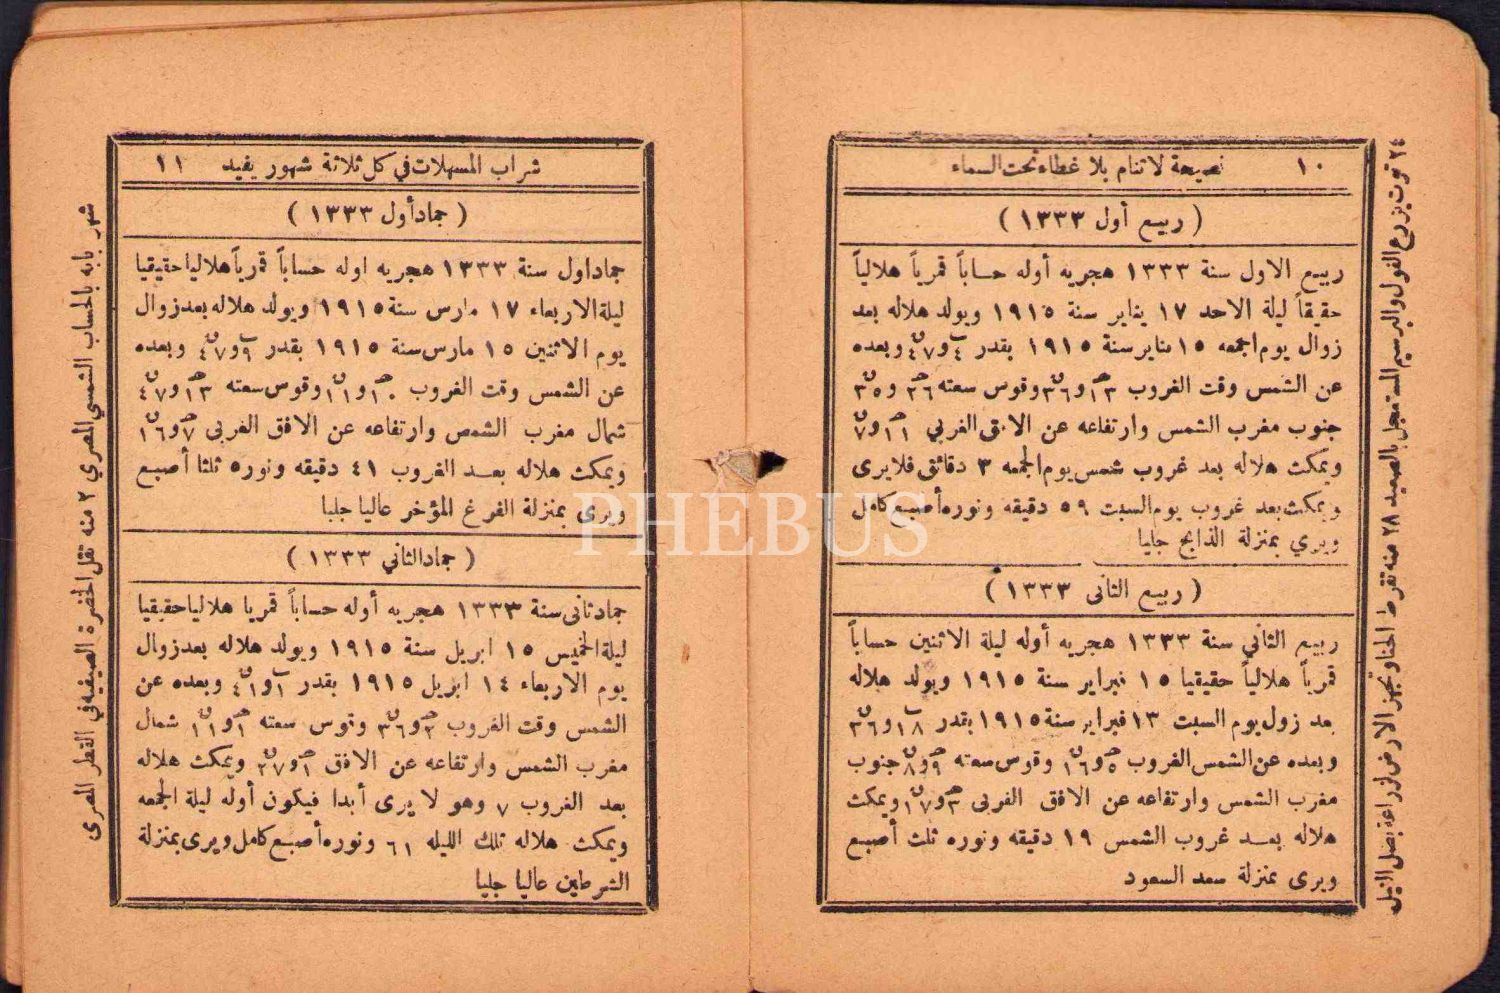 ١٠ نصيحة لا تنام بلا غطاء تحت السماء
( ربيع أول ١٣٣٣ )
ربيع الاول سنة ١٣٣٣ هجريه أوله حساباً قمرياً هلالياً
حقيقاً ليلة الاحد ١٧ يناير سنة ١٩١٥ ويولد هلاله بعد
زوال يوم الجمعه ١٥ يناير سنة ١٩١٥ بقدر وبعده
عن الشمس وقت الغروب وقوس سعته
جنوب مغرب الشمس وارتفاعه عن الافق الغربي
ويمكث هلاله بعد غروب شمس يوم الجمعه ٣ دقائق فلا يرى
ويمكث بعد غروب يوم السبت ٥٩ دقيقه ونوره أصبع كامل
ويري بمنزلة الذابح جليا
( ربيع الثانى ١٣٣٣ )
ربيع الثاني سنة ١٣٣٣ هجريه أوله ليلة الاثنين حساباً
قمرياً هلالياً حقيقيا ١٥ فبراير سنة ١٩١٥ ويولد هلاله
بعد زول يوم السبت ١٣ فبراير سنة ١٩١٥ بقدر
وبعده عن الشمس الغروب وقوس سعته جنوب
مغرب الشمس وارتفاعه عن الافق الغربى ويمكث
هلاله بعد غروب الشمس ١٩ دقيقه ونوره ثلث أصبع
ويرى بمنزلة سعد السعود
٢٤ توت يزرع الفول والبرسيم المستعجل بالصعيد ٢٨ منه تقرط الحنا وتجهز الارض لزراعة بصل النيل
شراب المسهلات في كل ثلاثة شهور يفيد ١١
( جماد أول ١٣٣٣ )
جماد اول سنة ١٣٣٣ هجريه اوله حساباً قمرياً هلاليا حقيقيا
ليلة الاربعاء ١٧ مارس سنة ١٩١٥ ويولد هلاله بعد زوال
يوم الاثنين ١٥ مارس سنة ١٩١٥ بقدر وبعده
عن الشمس وقت الغروب وقوس سعته
شمال مغرب الشمس وارتفاعه عن الافق الغربى
ويمكث هلاله بعد الغروب ٤١ دقيقه ونوره ثلثا أصبع
ويرى بمنزلة الفرغ المؤخر عاليا جليا
( جماد الثاني ١٣٣٣ )
جماد ثانى سنة ١٣٣٣ هجريه أوله حساباً قمريا هلاليا حقيقيا
ليلة الخميس ١٥ ابريل سنة ١٩١٥ ويولد هلاله بعد زوال
يوم الاربعاء ١٤ ابريل ١٩١٥ بقدر وبعده عن
الشمس وقت الغروب وقوس سعته شمال
مغرب الشمس وارتفاعه عن الافق ويمكث هلاله
بعد الغروب ٧ وهو لا يرى أبدا فيكون أوله ليلة الجمعه
ويمكث هلاله تلك الليله ٦١ ونوره أصبع كامل ويرى بمنزلة
الشرطين عاليا جليا
شهر بابه بالحساب الشمسي المصري ٢ منه تقل الخضرة الصيفيه في القطر المصرى
PHEBUS